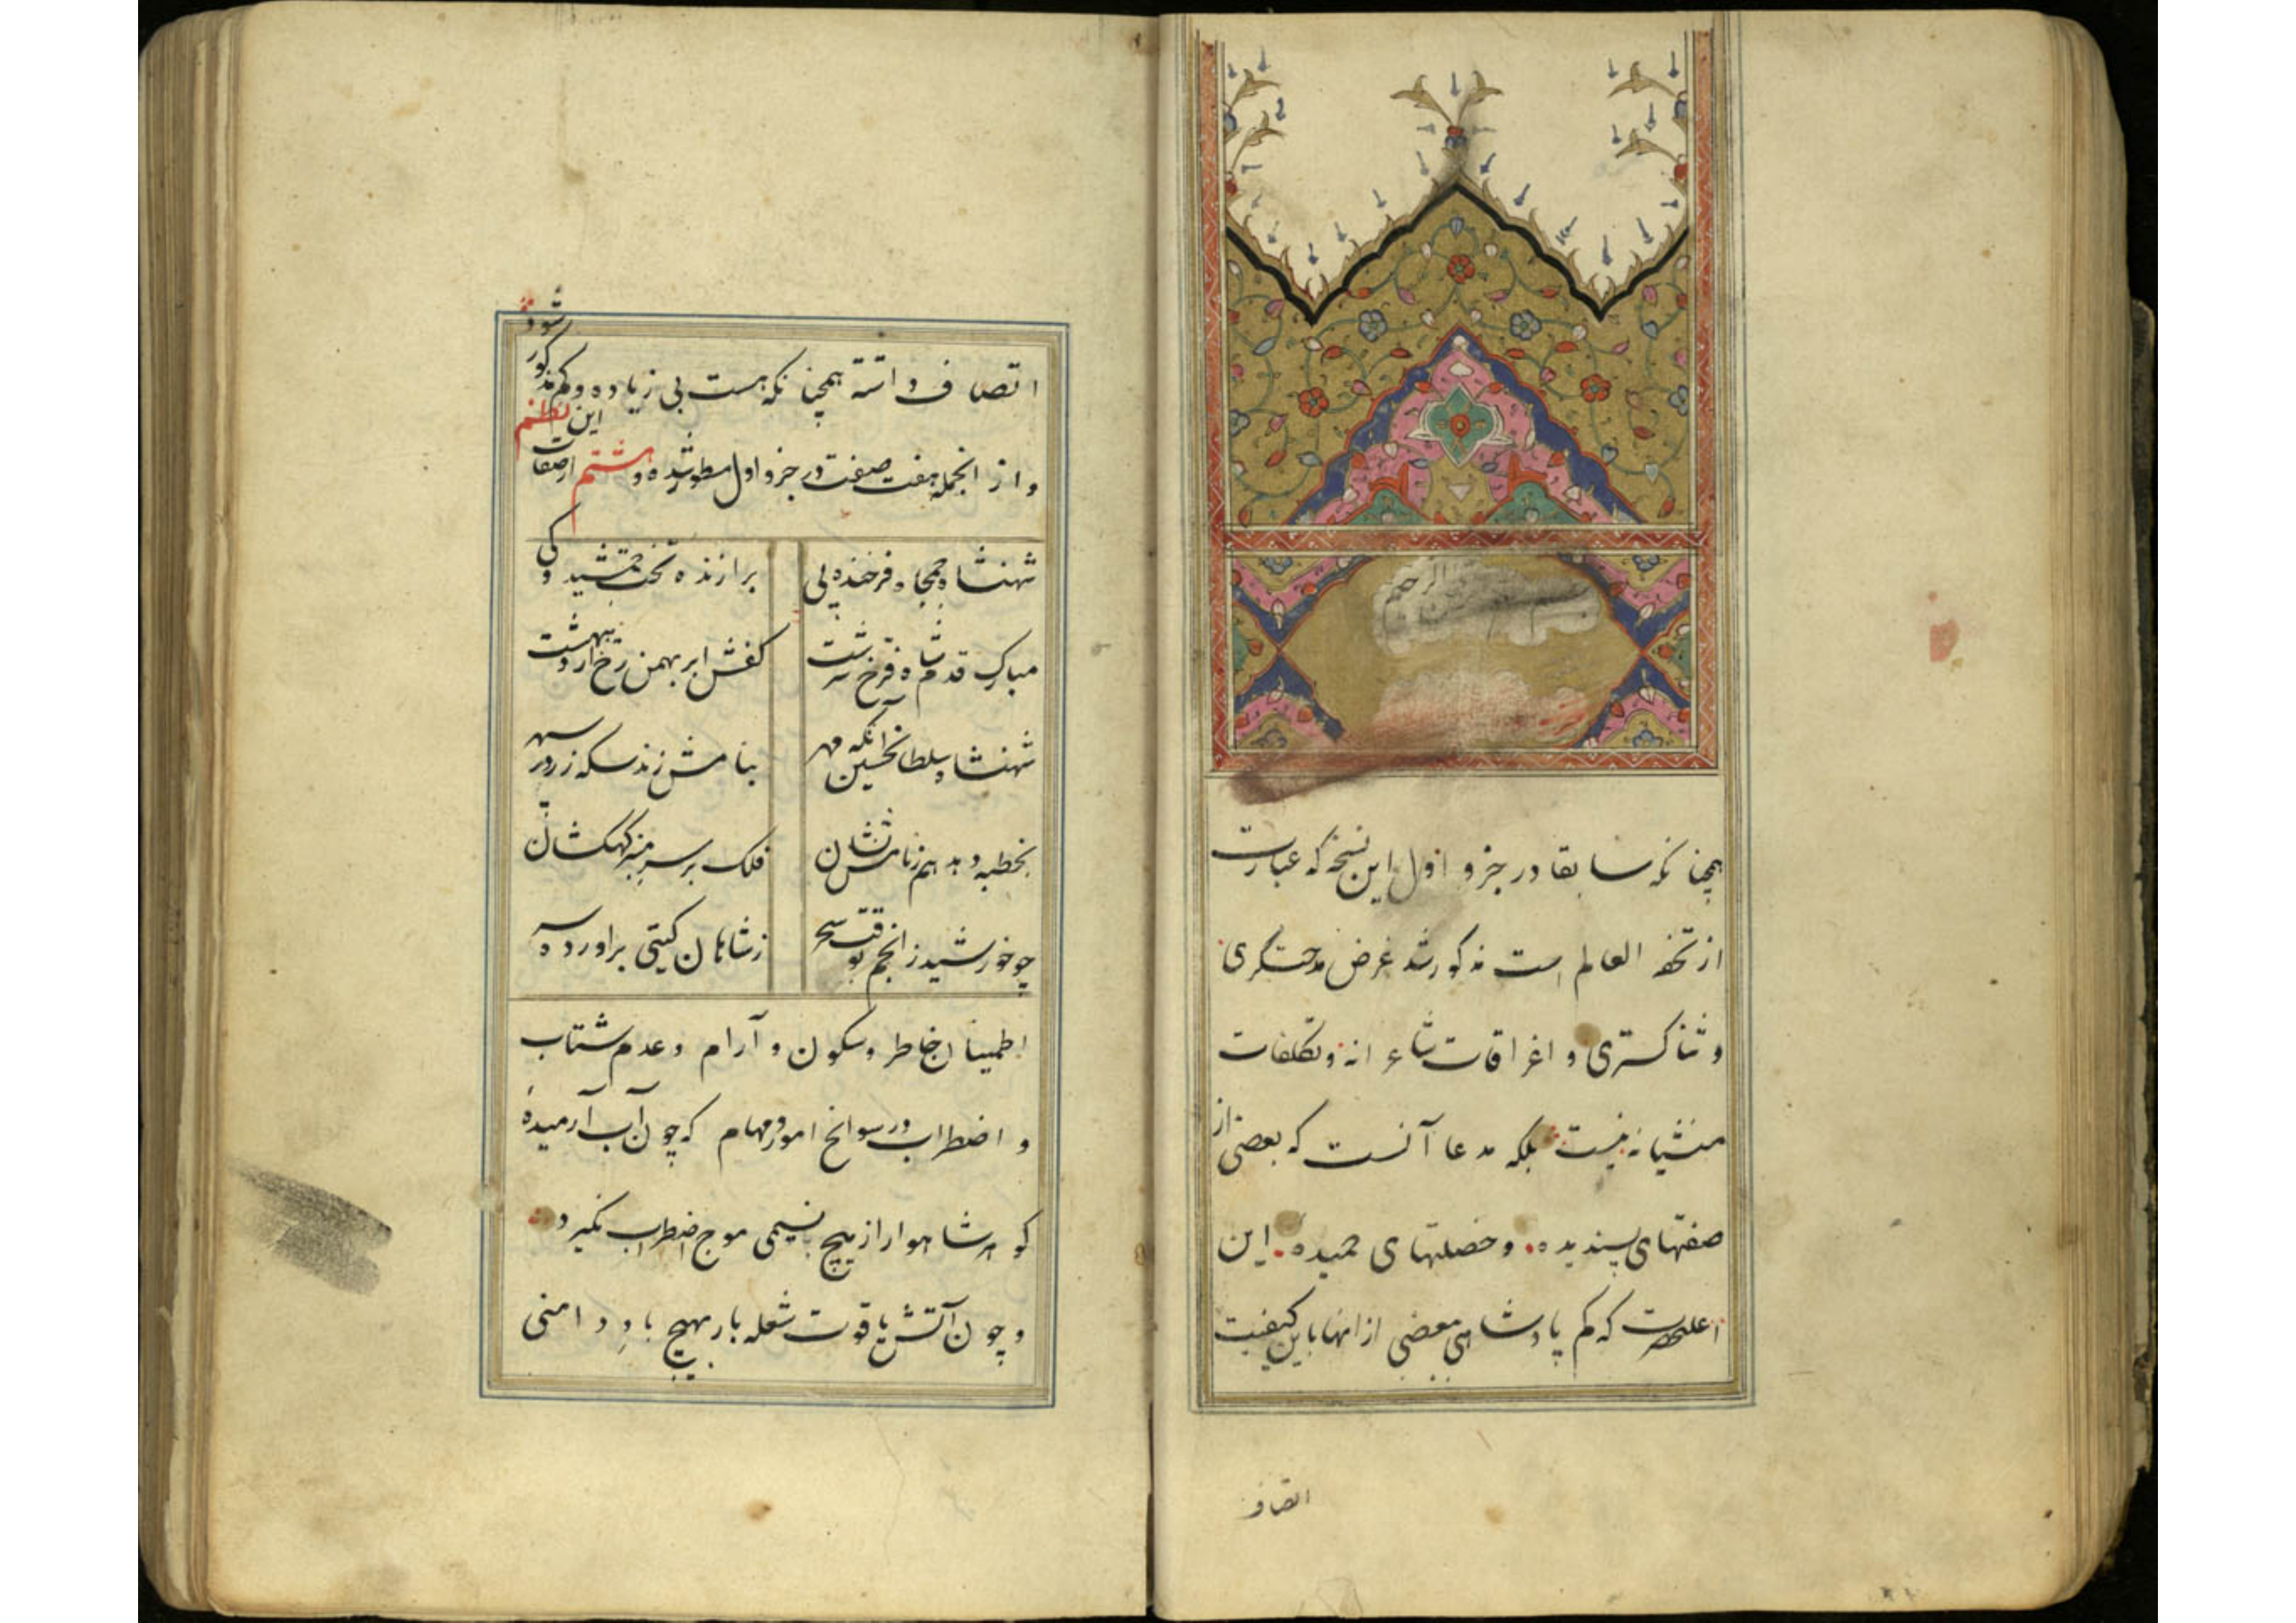 بسم الله الرحمن الرحیم
همچنانکه سابقا در جزو اول این نسخه که عبارت
از تحفة العالم است مذکور شد غرض مدحتگری
و ثناگستری و اغراقات شاعرانه و تکلفات
منشیانه نیست بلکه مدعا آنست که بعضی از
صفتهای پسندیده و خصلتهای حمیده این
اعلیحضرت که کم پادشاهی ببعضی از انها باین کیفیت
اتصاف
اتصاف داشته همچنانکه هست بی زیاده و کم مذکور شود
و از انجمله هفت صفت در جزو اول مسطور شده و هشتم از صفات این نظم
شهنشاه جمجاه فرخنده پی برازنده تخت جمشید و کی
مبارک قدم شاه فرخ سرشت کفش ابر بهمن رخ اردیبهشت
شهنشاه سلطان حسین آنکه مهر بنامش زند سکه زر در سپهر
بخطبه دهد هم ز نامش نشان فلک بر سر منبر کهکشان
چو خورشید ز انجم بوقت سحر ز شاهان گیتی براورده سر
اطمینان خاطر و سکون و آرام و عدم شتاب
و اضطراب در سوانح امور و مهام که چون آب آرمیدهٔ
گوهر شاهوار از هیچ نسیمی موج اضطراب نگیرد
و چون آتش یاقوت شعله بار بهیچ باد دامنی